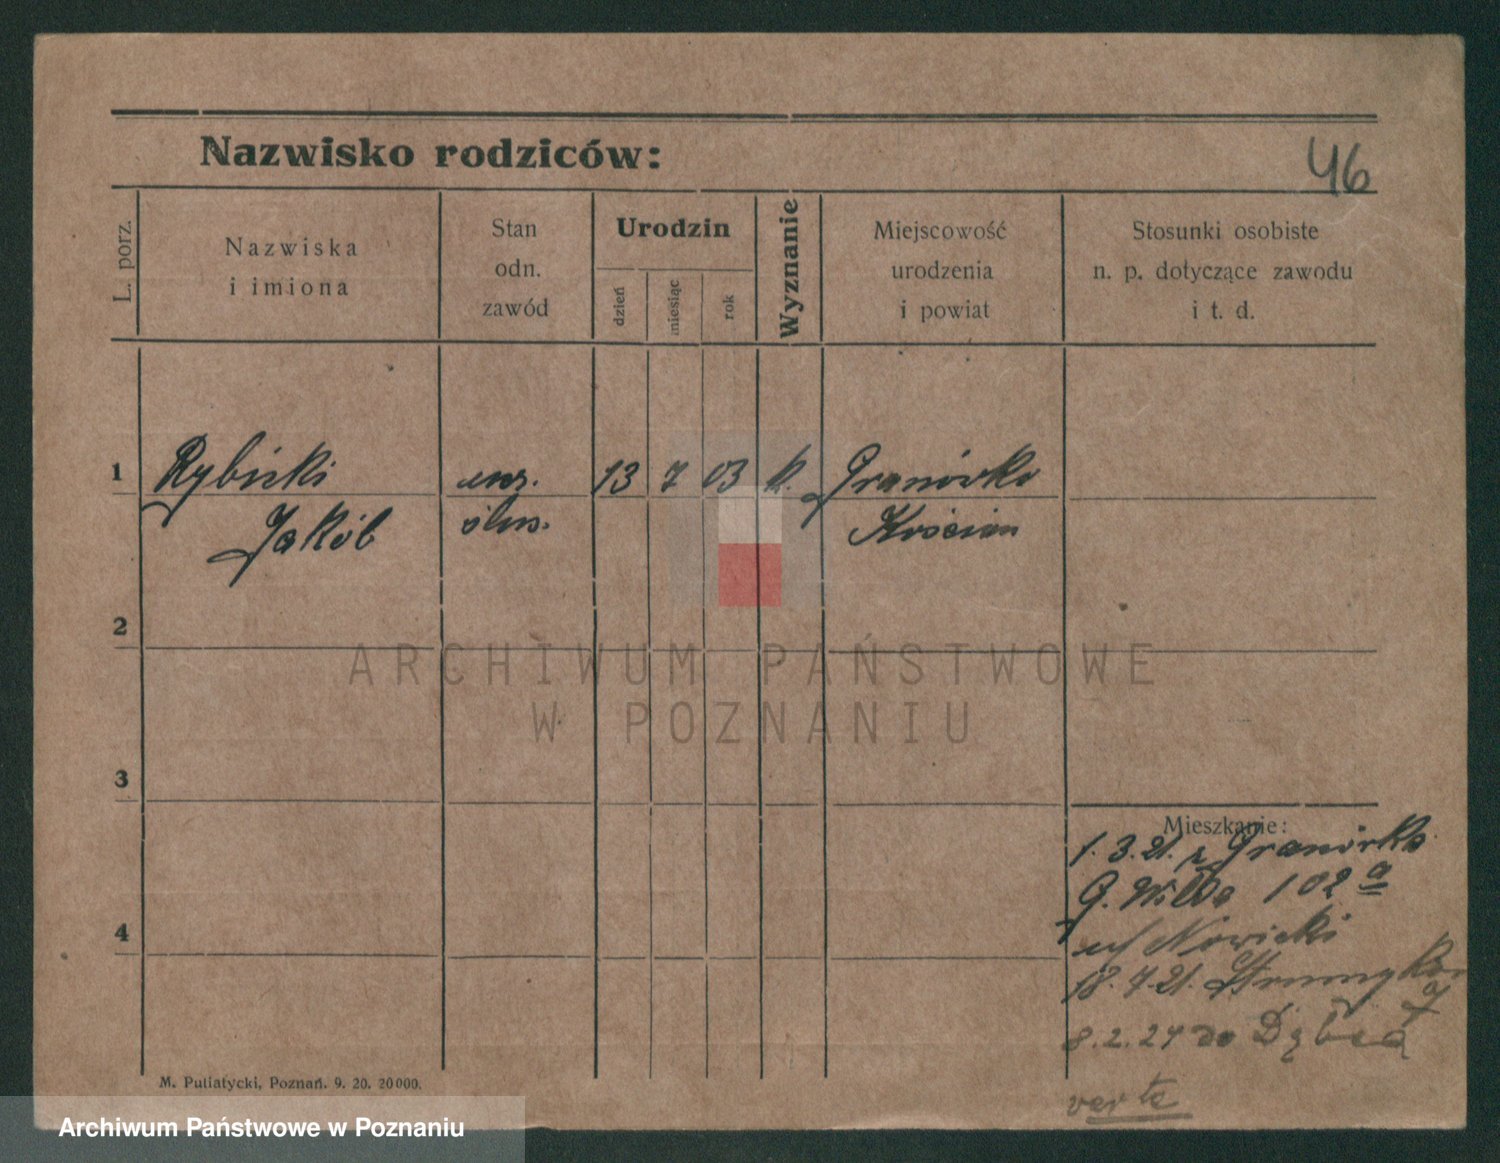 Nazwisko rodziców:
46
L. porz.
Nazwiska
i imiona
Stan
odn.
zawód
Urodzin
dzień
miesiąc
rok
Wyznanie
Miejscowość
urodzenia
i powiat
Stosunki osobiste
n. p. dotyczące zawodu
i t. d.
1 Rybicki ucz. 13 7 03 k. Granówko
Jakób ślus. Kościan
2
3
4
Mieszkanie:
1.3.21. z Granówka
G. Wilda 102 a
u/ Nowicki
18.7.21.
8.2.24 do
verte
M. Putiatycki, Poznań. 9. 20. 20000.
ARCHIWUM PAŃSTWOWE
W POZNANIU
Archiwum Państwowe w Poznaniu